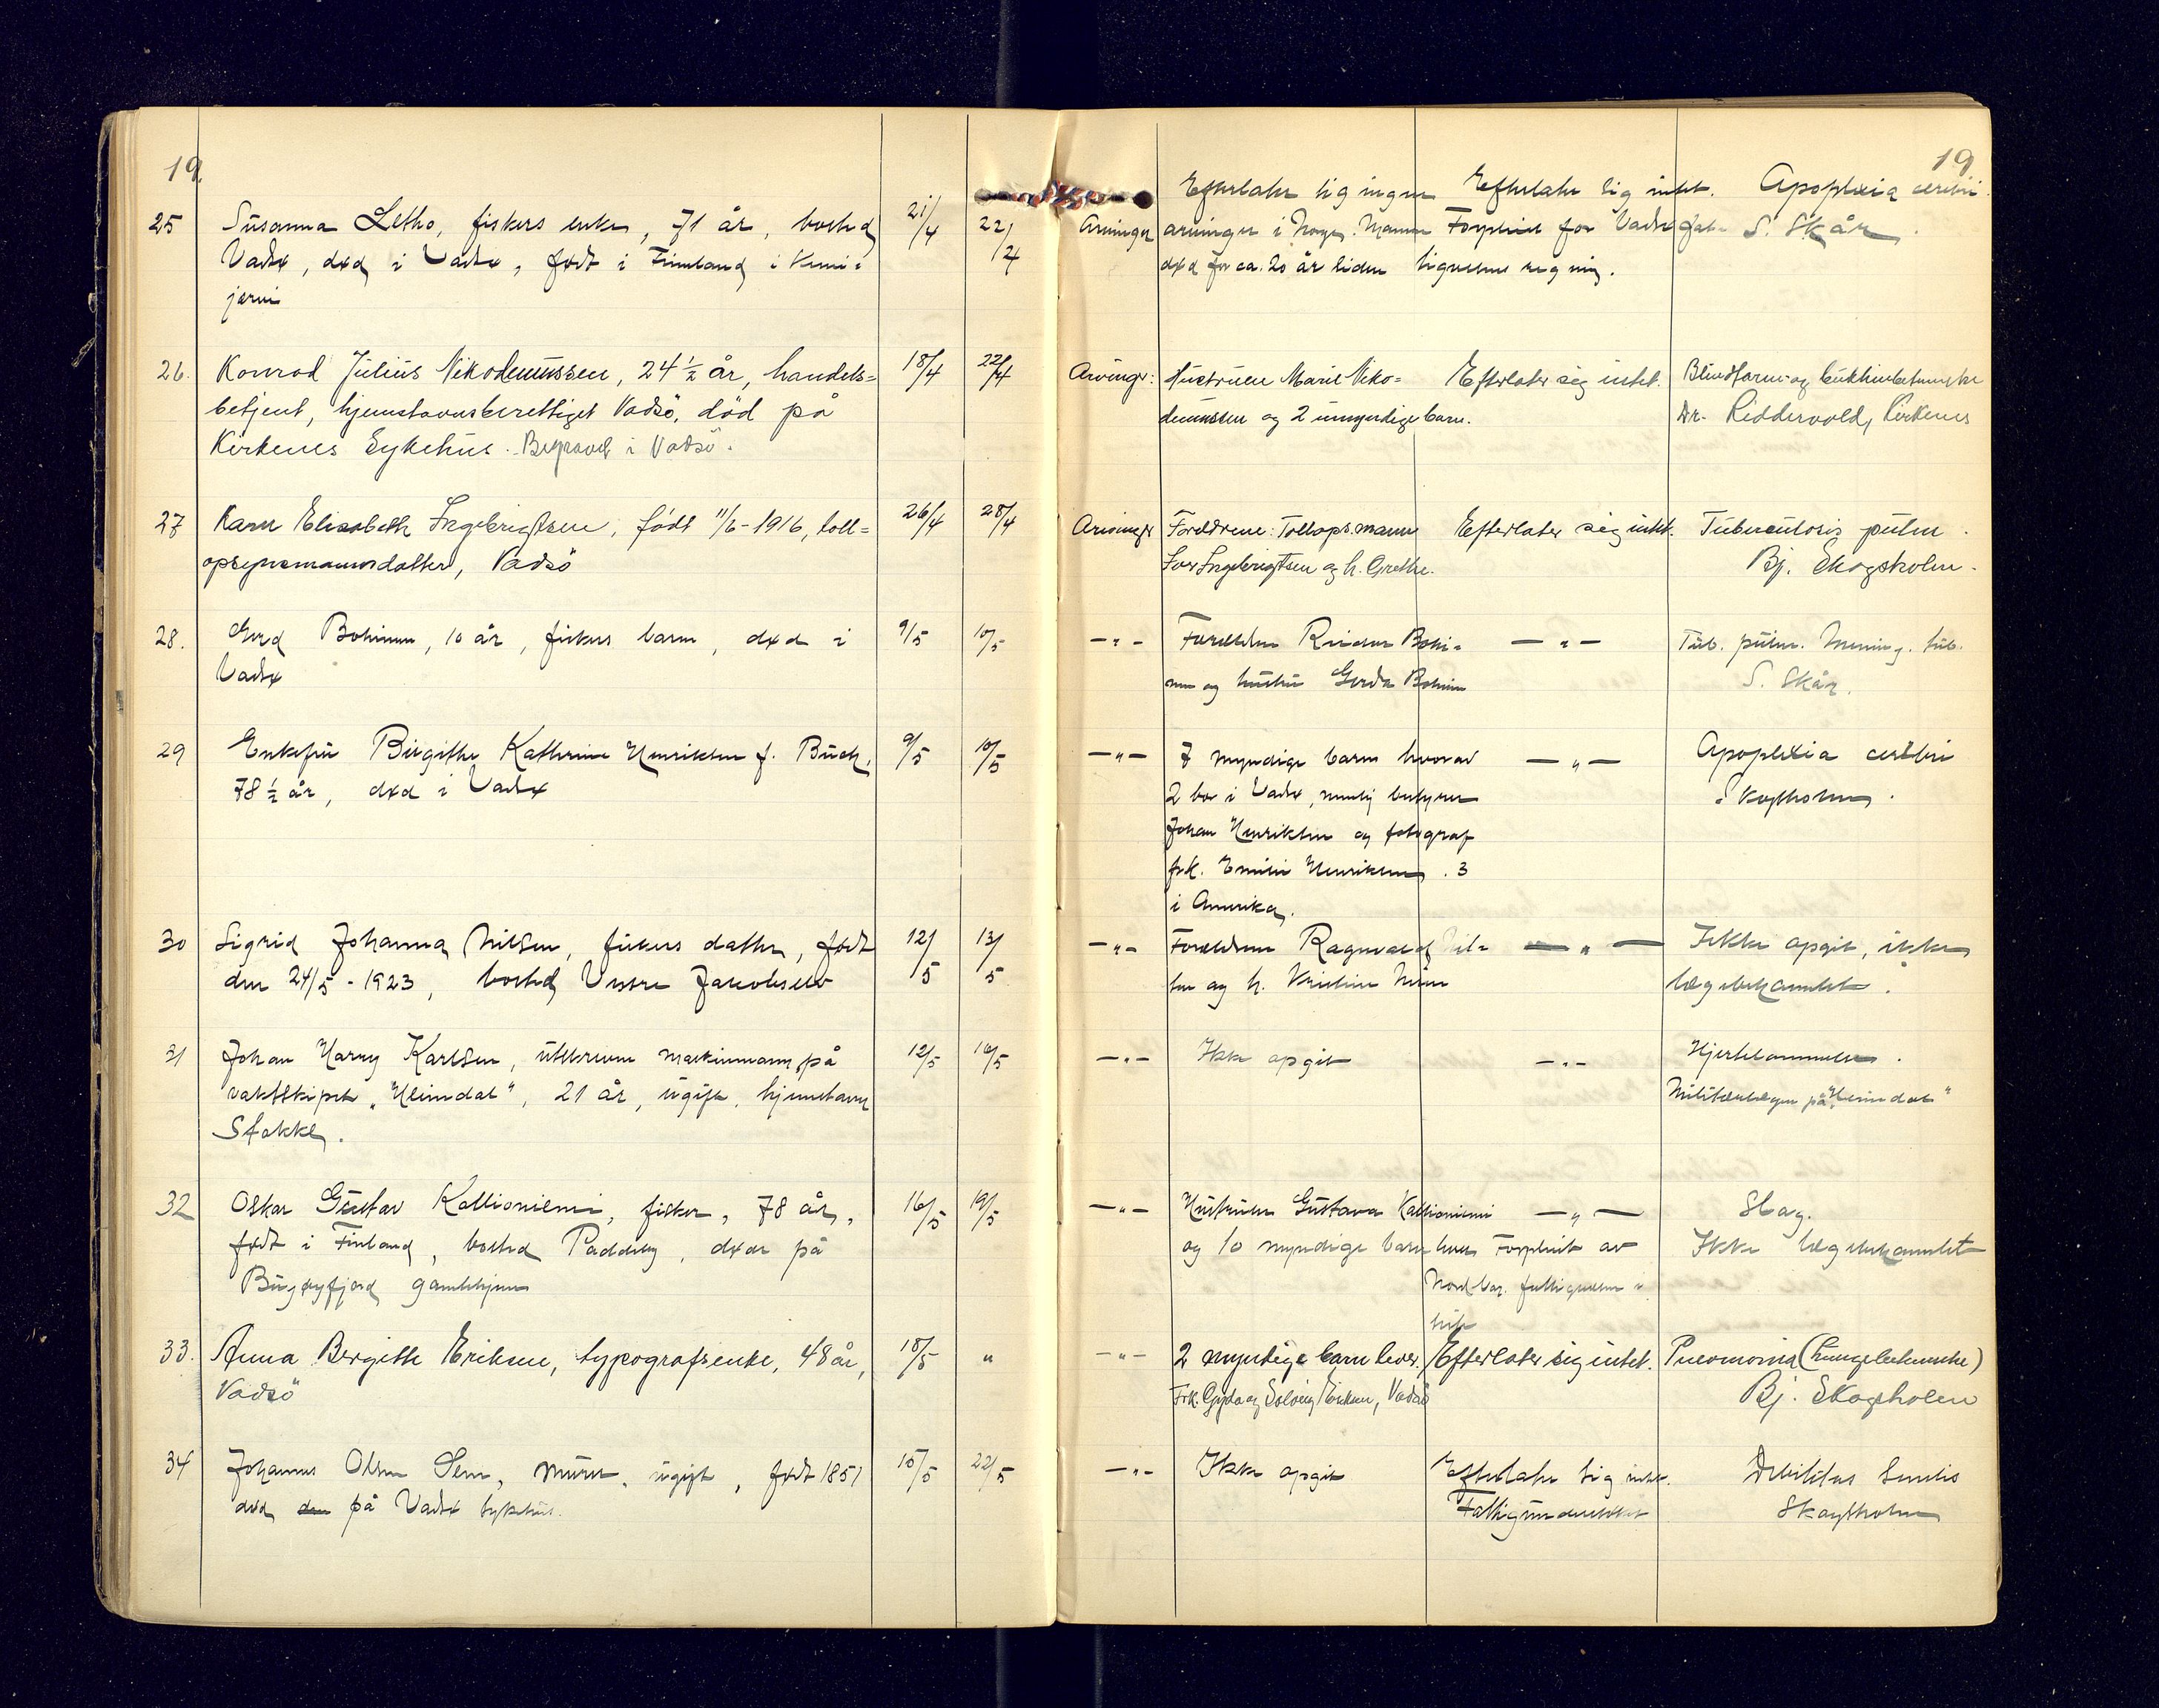 19.
19
25 Susanna Letho, fiskers enke, 71 år, bosted 21/4 22/4
Vadsø, død i Vadsø, født i Finland i Kemi=
järvi
Arvinger Efterlater sig ingen
arvinger i Norge. Mannen
død for ca. 20 år siden
Efterlater sig intet.
Forpleiet for Vadsø fat-
tigvesens regning.
Apoplexia cerebri
S. Skår
26. Konrad Julius Nikodemussen, 24 1/2 år, handels= 18/4 22/4
betjent, hjemstavnsberettiget Vadsö, död på
Kirkenes Sykehus. Begravet i Vadsö.
Arvinger: Hustruen Marie Niko=
demussen og 2 umyndige barn.
Efterlater sig intet.
Blindtarms- og bukhindebetennelse
Dr. Riddervold, Kirkenes
27 Karen Elisabeth Ingebrigtsen, född 11/6-1916, toll= 26/4 28/4
opsynsmannsdatter, Vadsö
Arvinger Foreldrene: Tollops.mann
Ingebrigtsen og h. Grethe.
Efterlater sig intet.
Tuberculosis pulm.
Bj. Skogsholm.
28. Gerd Bohinen, 10 år, fiskers barn, død i 9/5 10/5
Vadsø
—"— Foreldrene Reidar Bohi=
nen og hustru Gerda Bohinen
—"—
Tub. pulm. Mening. tub.
S. Skår.
29 Enkefru Birgithe Kathrine Henriksen f. Buck, 9/5 10/5
78 1/2 år, død i Vadsø
—"— 7 myndige barn hvorav
2 bor i Vadsø, nemlig bestyrer
Johan Henriksen og fotograf
frk. Emilie Henriksen. 3
i Amerika.
—"—
Apoplexia cerebri
Skogsholm.
30 Sigrid Johanna Nilsen, fiskers datter, født 12/5 13/5
den 24/5-1923, bosted Vestre Jakobselv
—"— Foreldrene Ragnvald Nil=
sen og h. Kristine Nilsen
—"—
Ikke opgit, ikke
lægebehandlet.
31 Johan Harry Karlsen, utskreven maskinmann på 12/5 16/5
vaktskipet „Heimdal", 21 år, ugift, hjemstavn
Stokke.
—"— Ikke opgit
—"—
Hjertelammelse.
Militærlægen på „Heimdal"
32 Oskar Gustav Kallioniemi, fisker, 78 år, 16/5 19/5
født i Finland, bosted Paddeby, døde på
Bugøyfjord gamlehjem
—"— Hustruen Gustava Kallioniemi
og 10 myndige barn
—"—
Forpleiet av
Nord Var. fattigvesen i
Slag.
Ikke lægebehandlet
33. Anna Bergitte Eriksen, typografsenke, 48 år, 18/5 "
Vadsö
—"— 2 myndige barn lever.
Frk. Gyda og Solveig Eriksen, Vadsö
Efterlater sig intet.
Pneumonia (Lungebetennelse)
Bj. Skogsholm
34 Johannes Olsen Sem, murer, ugift, født 1851 15/5 22/5
død den på Vadsø sykehus.
—"— Ikke opgit
Efterlater sig intet.
Fattigunderstøttet
Debilitas senilis
Skogsholm